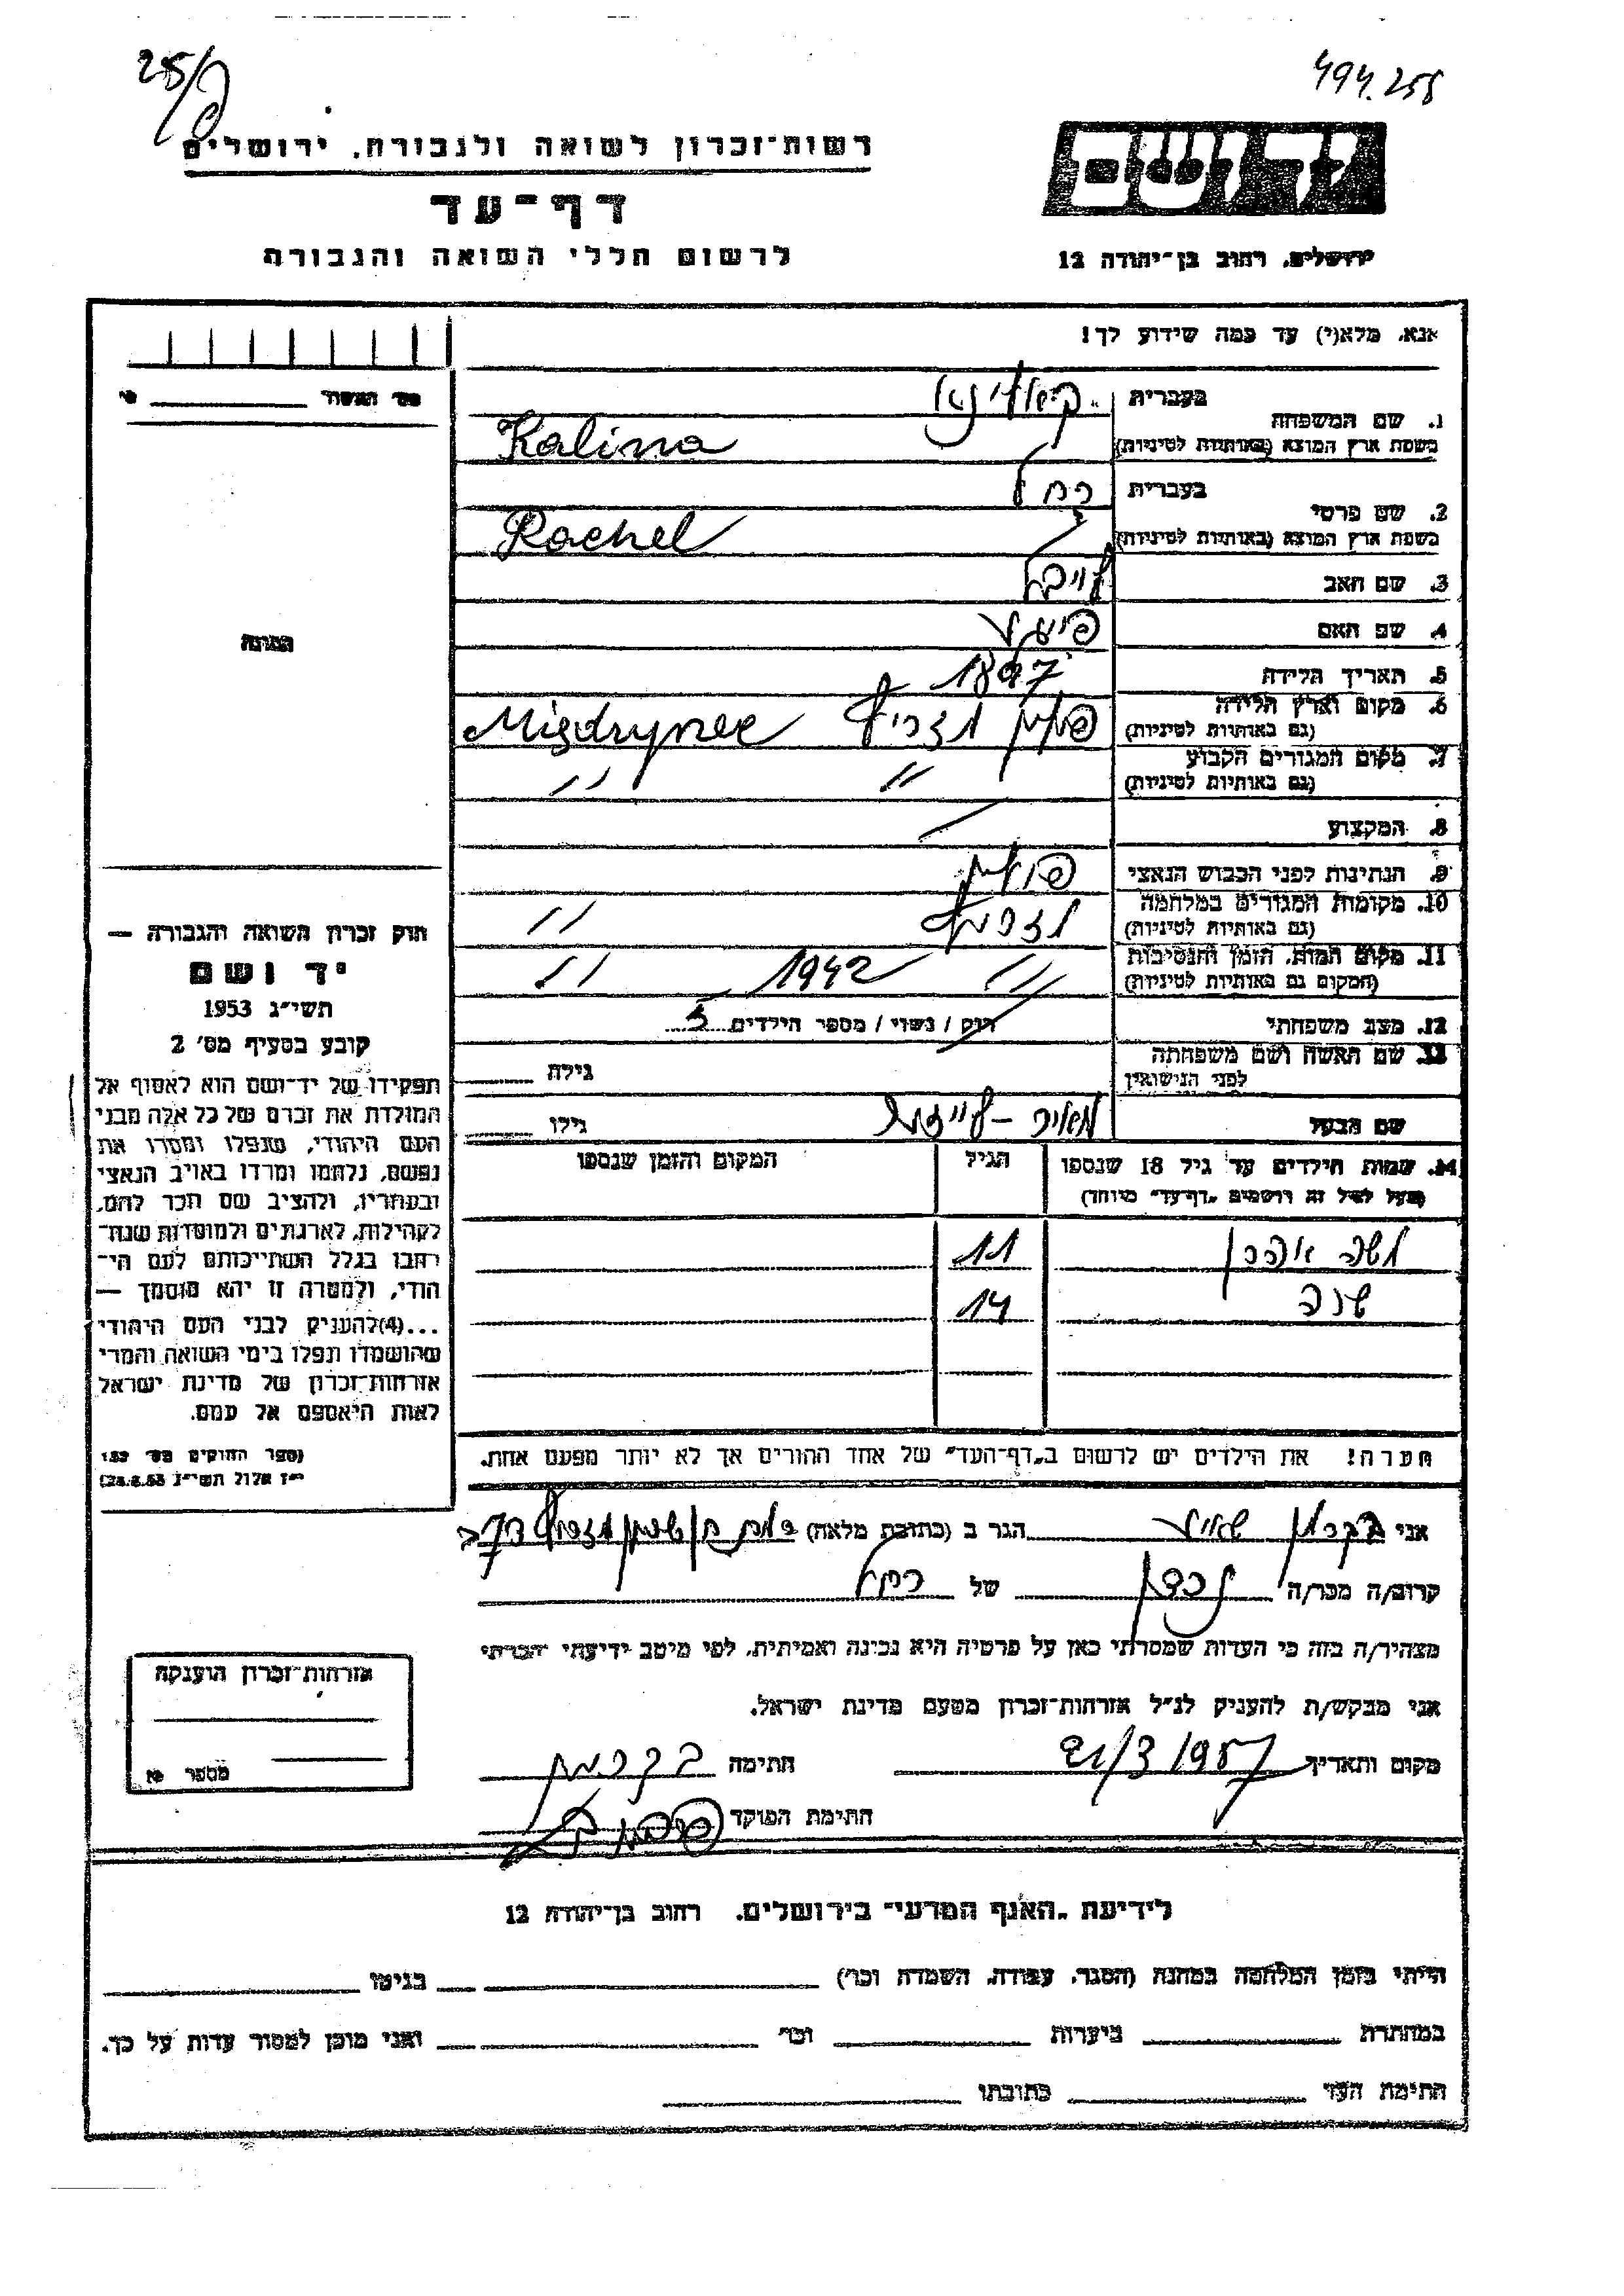 494.258
25/
יד ושם
ירושלים, רחוב בן־יהודה 12
רשות־זכרון לשואה ולגבורה, ירושלים
דף־עד
לרשום חללי השואה והגבורה
אנא, מלא(י) עד כמה שידוע לך!
1. שם המשפחה
בעברית
בשפת ארץ המוצא (באותיות לטיניות) Kalina
2. שם פרטי
בעברית רחל
בשפת ארץ המוצא (באותיות לטיניות) Rachel
3. שם האב לייבל
4. שם האם
5. תאריך הלידה 1897
6. מקום וארץ הלידה פולין
(גם באותיות לטיניות)
7. מקום המגורים הקבוע " "
(גם באותיות לטיניות)
8. המקצוע /
9. הנתינות לפני הכבוש הנאצי פולין
10. מקומות המגורים במלחמה "
(גם באותיות לטיניות)
11. מקום המות, הזמן והנסיבות " 1942 "
(המקום גם באותיות לטיניות)
12. מצב משפחתי רוק / נשוי / מספר הילדים 5
13. שם האשה ושם משפחתה
לפני הנישואין
גילה
שם הבעל
גילו
14. שמות הילדים עד גיל 18 שנספו
(מעל לגיל זה רושמים "דף־עד" מיוחד)
הגיל
המקום והזמן שנספו
משה אהרן 11
שרה 14
הערה! את הילדים יש לרשום ב"דף־העד" של אחד ההורים אך לא יותר מפעם אחת.
אני הגר ב (כתובת מלאה)
קרוב/ה מכר/ה נכדן של רחל
מצהיר/ה בזה כי העדות שמסרתי כאן על פרטיה היא נכונה ואמיתית, לפי מיטב ידיעתי והכרתי
אני מבקש/ת להעניק לנ"ל אזרחות־זכרון מטעם מדינת ישראל.
מקום ותאריך 21/3 1957 חתימה
חתימת הפוקד
מס' האשור
התמונה
חוק זכרון השואה והגבורה —
יד ושם
תשי"ג 1953
קובע בסעיף מס' 2
תפקידו של יד־ושם הוא לאסוף אל
המולדת את זכרם של כל אלה מבני
העם היהודי, שנפלו ומסרו את
נפשם, נלחמו ומרדו באויב הנאצי
ובעוזריו, ולהציב שם וזכר להם,
לקהילות, לארגונים ולמוסדות שנח־
רבו בגלל השתייכותם לעם הי־
הודי, ולמטרה זו יהא מוסמך —
...(4) להעניק לבני העם היהודי
שהושמדו ונפלו בימי השואה והמרי
אזרחות־זכרון של מדינת ישראל
לאות היאספם אל עמם.
(ספר החוקים מס' 132
י"ז אלול תשי"ג 28.8.53)
אזרחות־זכרון הוענקה
מספר
לידיעת "האגף המדעי" בירושלים, רחוב בן־יהודה 12
הייתי בזמן המלחמה במחנה (הסגר, עבודה, השמדה וכו') בגיטו
במחתרת ביערות וכו' ואני מוכן למסור עדות על כך.
חתימת העד כתובתו